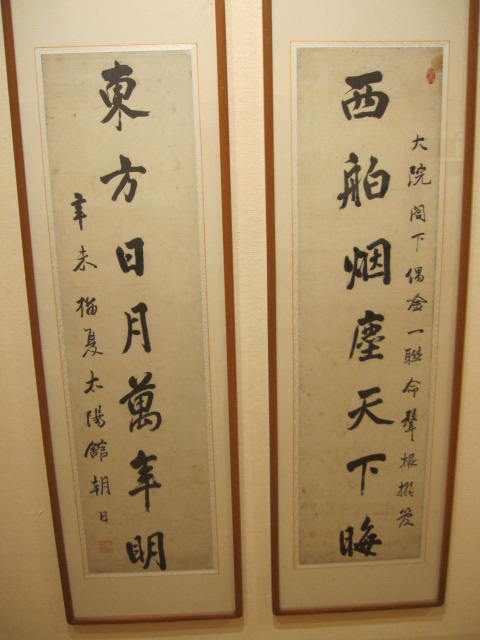 大院閤下偶一聯命聾根搨
西舶烟塵天下晦
東方日月萬年明
辛未榴夏太陽舘朝日